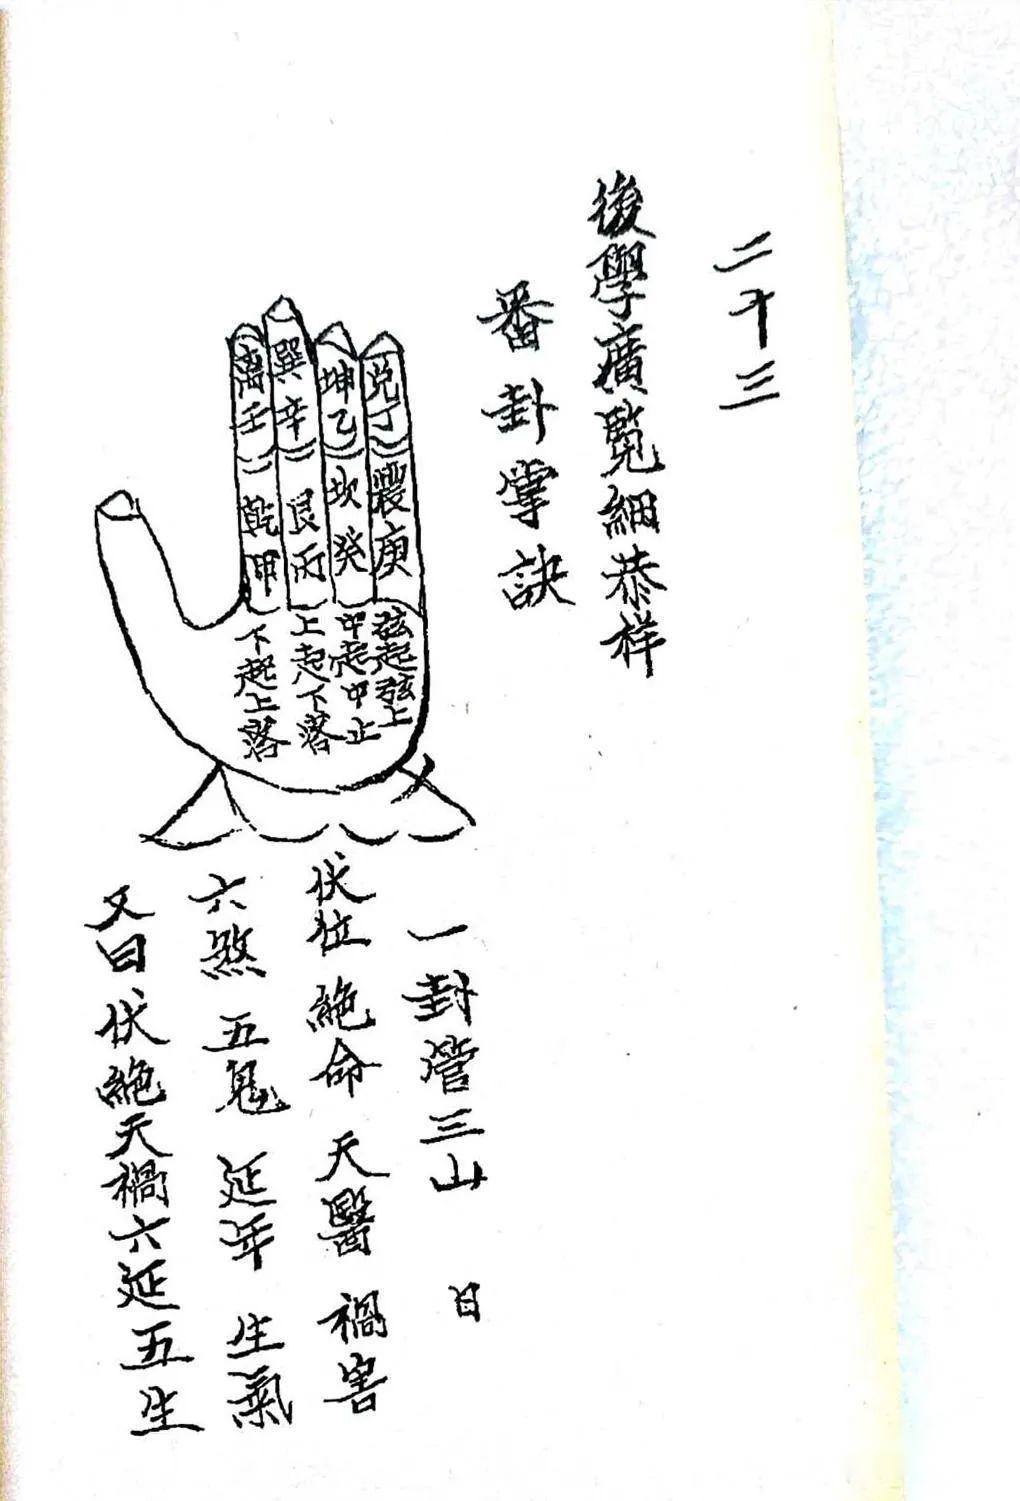 二十三
後學廣覽細恭样
番卦掌訣
兌丁
震庚
弦起弦上
坤乙
坎癸
中起中止
巽辛
艮丙
上起下落
离壬
乾甲
下起上落
一封管三山 日
伏位 絶命 天醫 禍害
六煞 五鬼 延年 生氣
又曰伏絶天禍六延五生